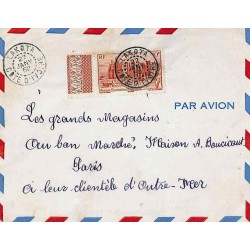 LAKOTA
CÔTE D'IVOIRE
LAKOTA
PAR AVION
Les grands Magasins
Au bon Marché, Maison A. Boucicaut
Paris
à leur clientèle d'Outre-Mer